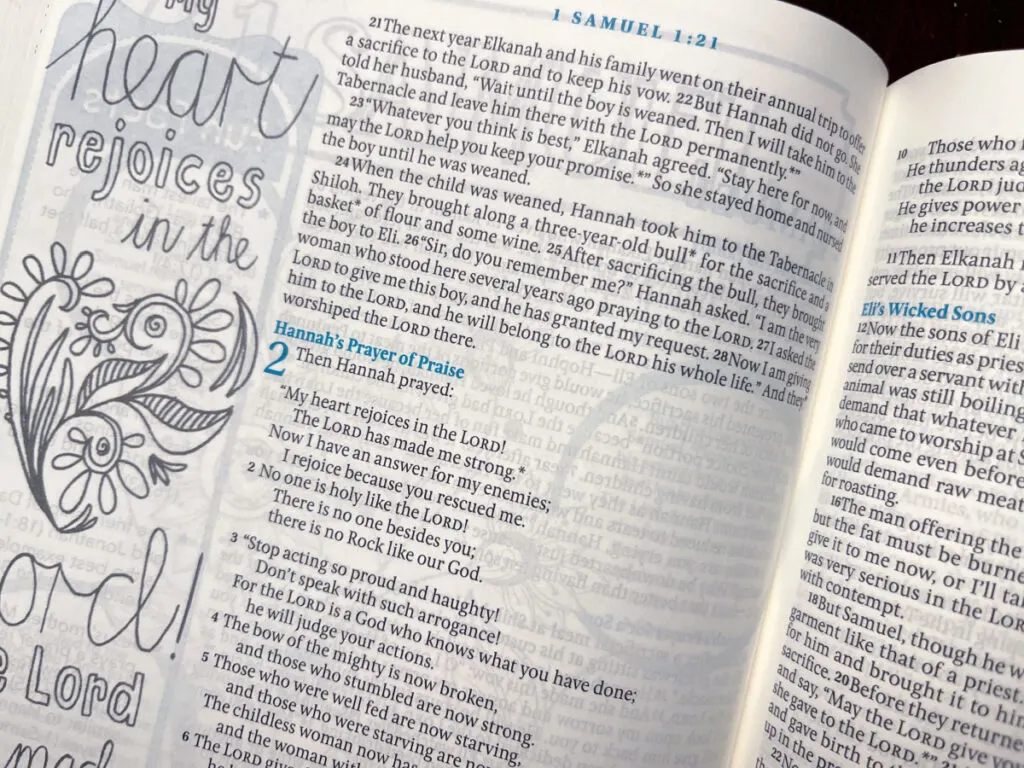 My
heart
rejoices
in the
ord!
e Lord
1 SAMUEL 1:21
21The next year Elkanah and his family went on their annual trip to offer
a sacrifice to the LORD and to keep his vow. 22But Hannah did not go. She
told her husband, “Wait until the boy is weaned. Then I will take him to the
Tabernacle and leave him there with the LORD permanently.*”
23“Whatever you think is best,” Elkanah agreed. “Stay here for now, and
may the LORD help you keep your promise.*” So she stayed home and nursed
the boy until he was weaned.
24When the child was weaned, Hannah took him to the Tabernacle in
Shiloh. They brought along a three-year-old bull* for the sacrifice and a
basket* of flour and some wine. 25After sacrificing the bull, they brought
the boy to Eli. 26“Sir, do you remember me?” Hannah asked. “I am the very
woman who stood here several years ago praying to the LORD. 27I asked the
LORD to give me this boy, and he has granted my request. 28Now I am giving
him to the LORD, and he will belong to the LORD his whole life.” And they
worshiped the LORD there.
Hannah’s Prayer of Praise
2 Then Hannah prayed:
“My heart rejoices in the LORD!
The LORD has made me strong.*
Now I have an answer for my enemies;
I rejoice because you rescued me.
2 No one is holy like the LORD!
There is no one besides you;
there is no Rock like our God.
3 “Stop acting so proud and haughty!
Don’t speak with such arrogance!
For the LORD is a God who knows what you have done;
he will judge your actions.
4 The bow of the mighty is now broken,
and those who stumbled are now strong.
5 Those who were well fed are now starving,
and those who were starving are now
The childless woman now has
and the woman with
6 The LORD
10 Those who
He thunders
the LORD jud
He gives power
he increases t
11Then Elkanah
served the LORD by
Eli’s Wicked Sons
12Now the sons of Eli
for their duties as pries
send over a servant with
animal was still boiling
demand that whatever
who came to worship at S
would come even before
would demand raw meat
for roasting.
16The man offering the
but the fat must be burne
give it to me now, or I’ll tak
was very serious in the LOR
with contempt.
18But Samuel, though he w
garment like that of a priest.
for him and brought it to him
sacrifice. 20Before they returne
and say, “May the LORD give you
she gave to the LORD.*”
and gave birth to
up in the